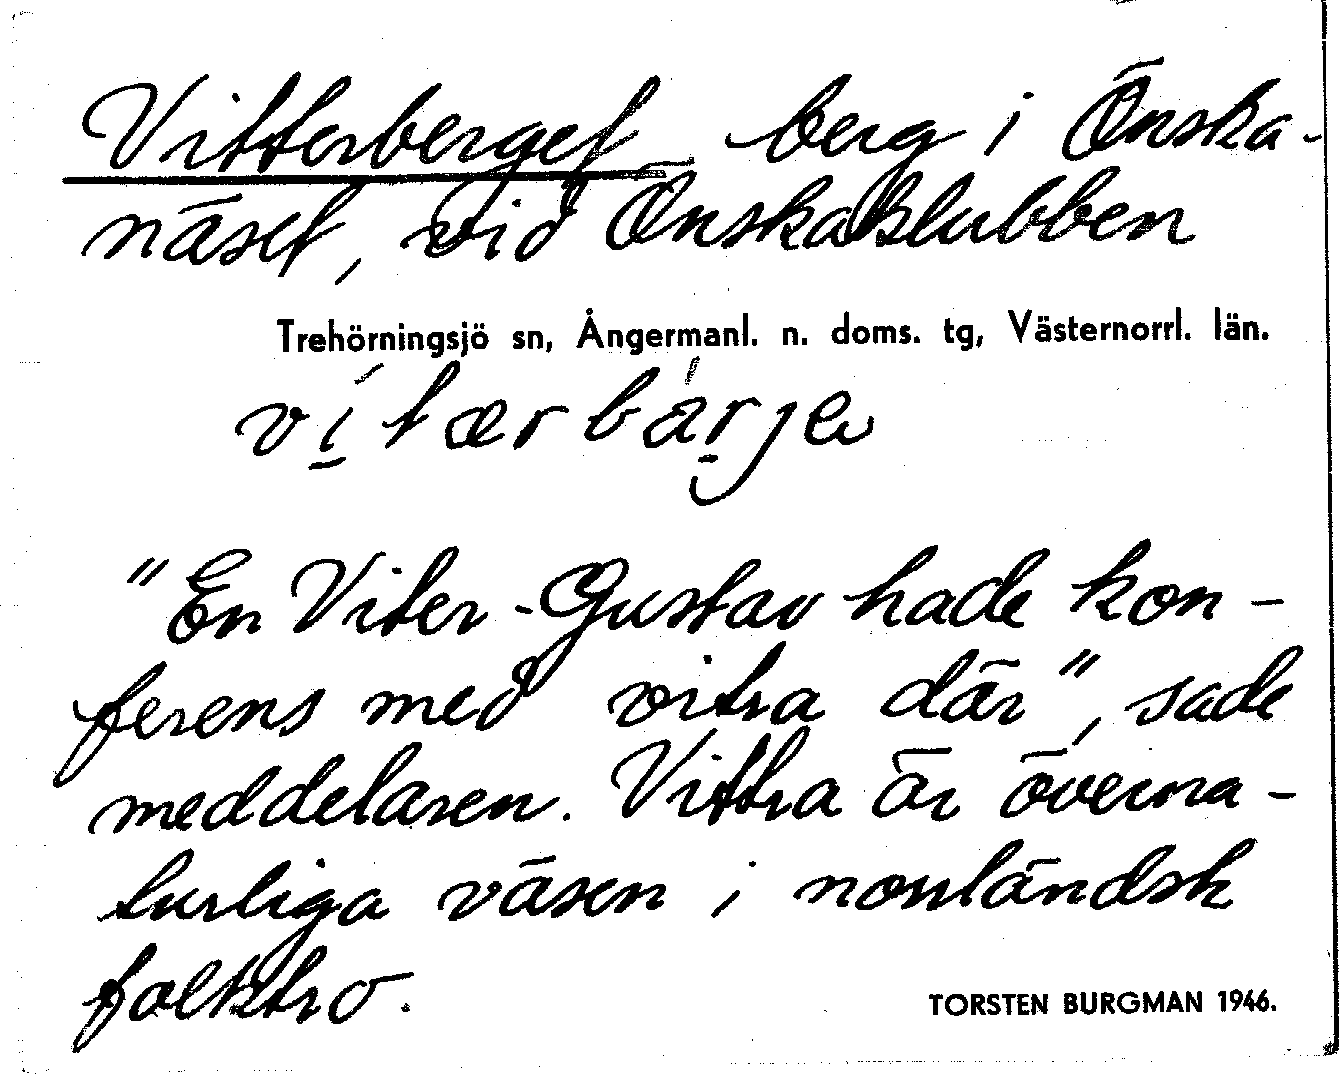 Vitterberget berg i Önska-
näset, vid Önskaklubben
Trehörningsjö sn, Ångermanl. n. doms. tg, Västernorrl. län.
"En Viter-Gustav hade kon-
ferens med vitra där", sade
meddelaren. Vittra är överna-
turliga väsen i norrländsk
folktro.
TORSTEN BURGMAN 1946.